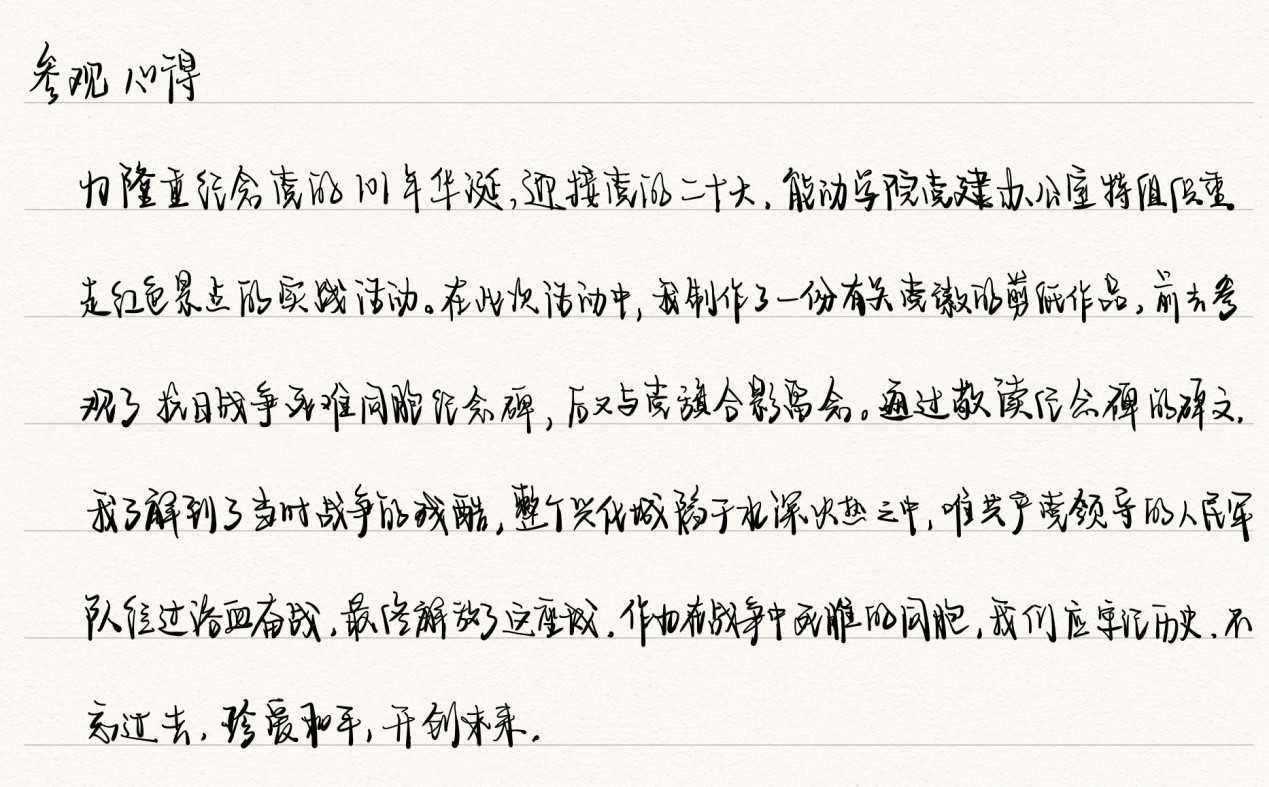 参观心得
为隆重纪念党的101年华诞,迎接党的二十大,能动学院党建办公室特组织重
走红色景点的实践活动。在此次活动中,我制作了一份有关党徽的剪纸作品,前去参
观了抗日战争死难同胞纪念碑,后又与党旗合影留念。通过敬读纪念碑的碑文,
我了解到了当时战争的残酷,整个兴化城陷于水深火热之中,唯共产党领导的人民军
队经过浴血奋战,最终解放了这座城。作为在战争中死难的同胞,我们应牢记历史,不
忘过去,珍爱和平,开创未来.